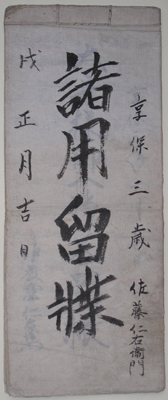 享保三歳 佐藤仁右衛門
諸用留牒
戊 正月吉日